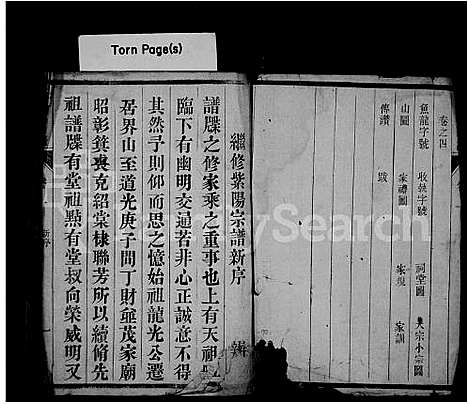 Torn Page(s)
卷之四
魚龍字號 收執字號 祠堂圖 大宗小宗圖
山圖 家禮圖 家規 家訓
傳讚 跋
繼修紫陽宗譜新序
譜牒之修家乘之重事也上有天祖
臨下有幽明交通若非心正誠意不得
其然予則仰而思之憶始祖龍光公遷
居界山至道光庚子間丁財兪茂家廟
昭彰箕裘克紹棠棣聯芳所以續脩先
祖譜牒有堂祖㸃有堂叔向榮威明又
新序